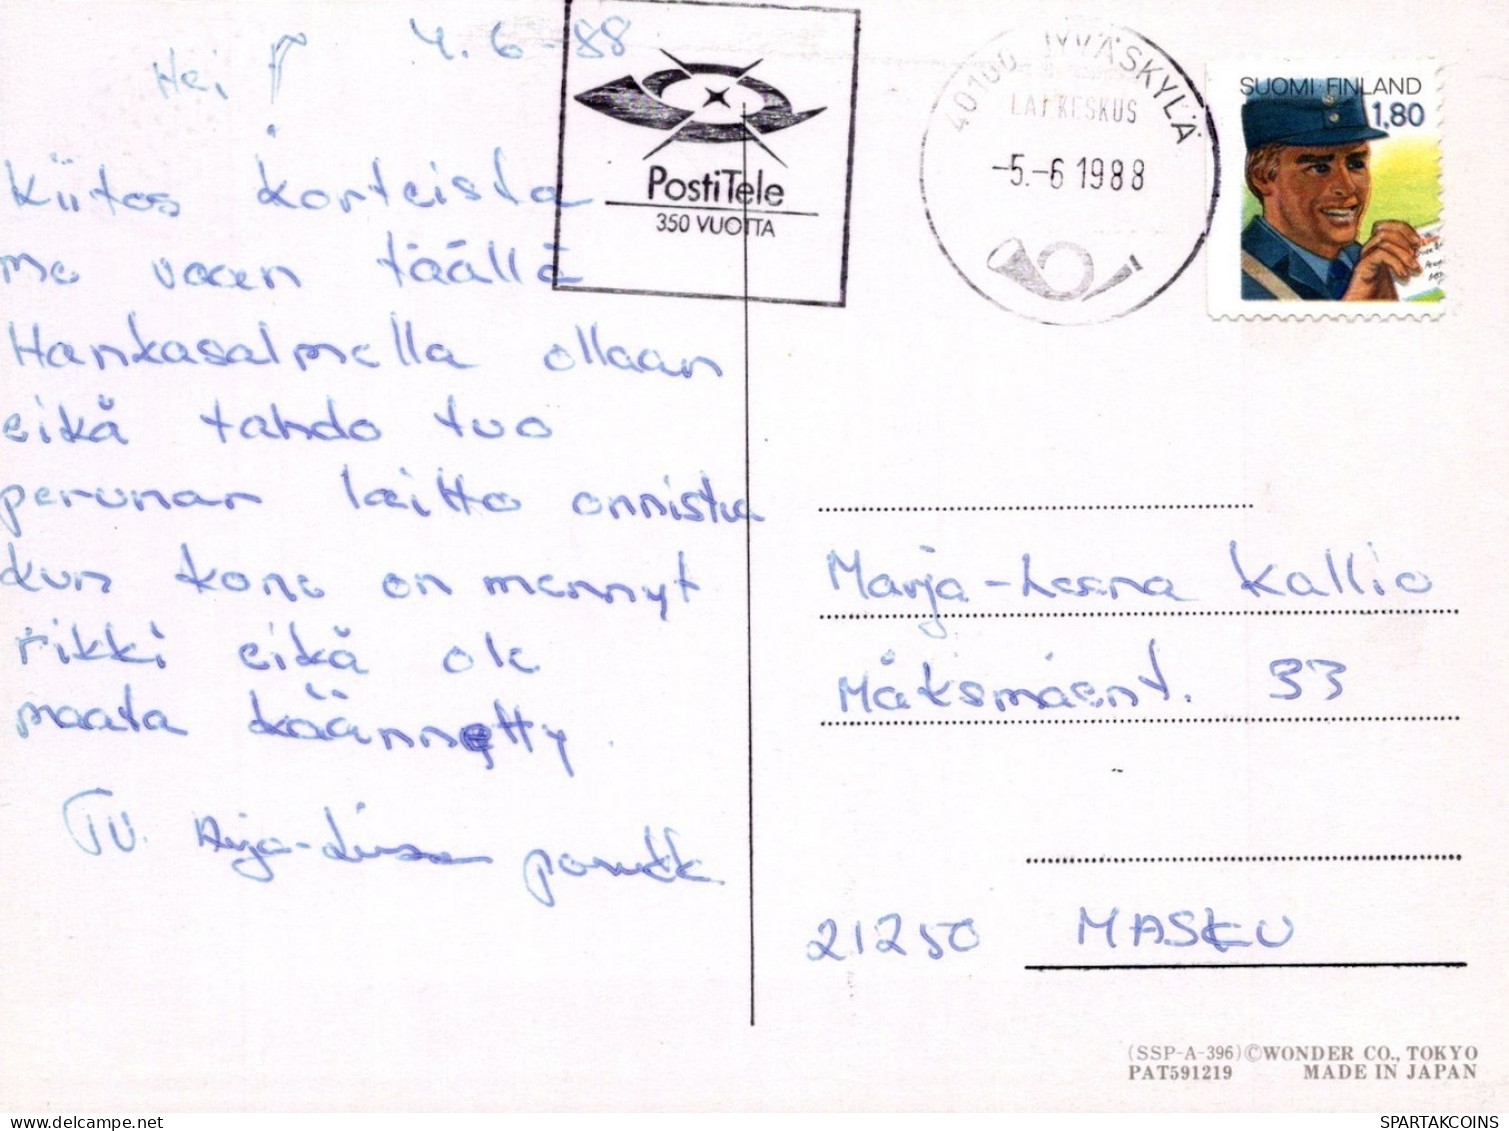 4.6-88
Hei!
Kiitos korteista
me vaan täällä
Hankasalmella ollaan
eikä tahdo tuo
perunan laitto onnistua
kun kone on mennyt
rikki eikä ole
maata käännetty.
TV. Arja-Liisa
PostiTele
350 VUOTTA
40100 JYVÄSKYLÄ
LAJ KESKUS
-5.-6 1988
SUOMI·FINLAND
1,80
Marja-Leena Kallio
Mäksmäent. 33
21250 MASKU
(SSP-A-396)©WONDER CO., TOKYO
PAT591219 MADE IN JAPAN
SPARTAKCOINS
delcampe.net SPARTAKCOINS